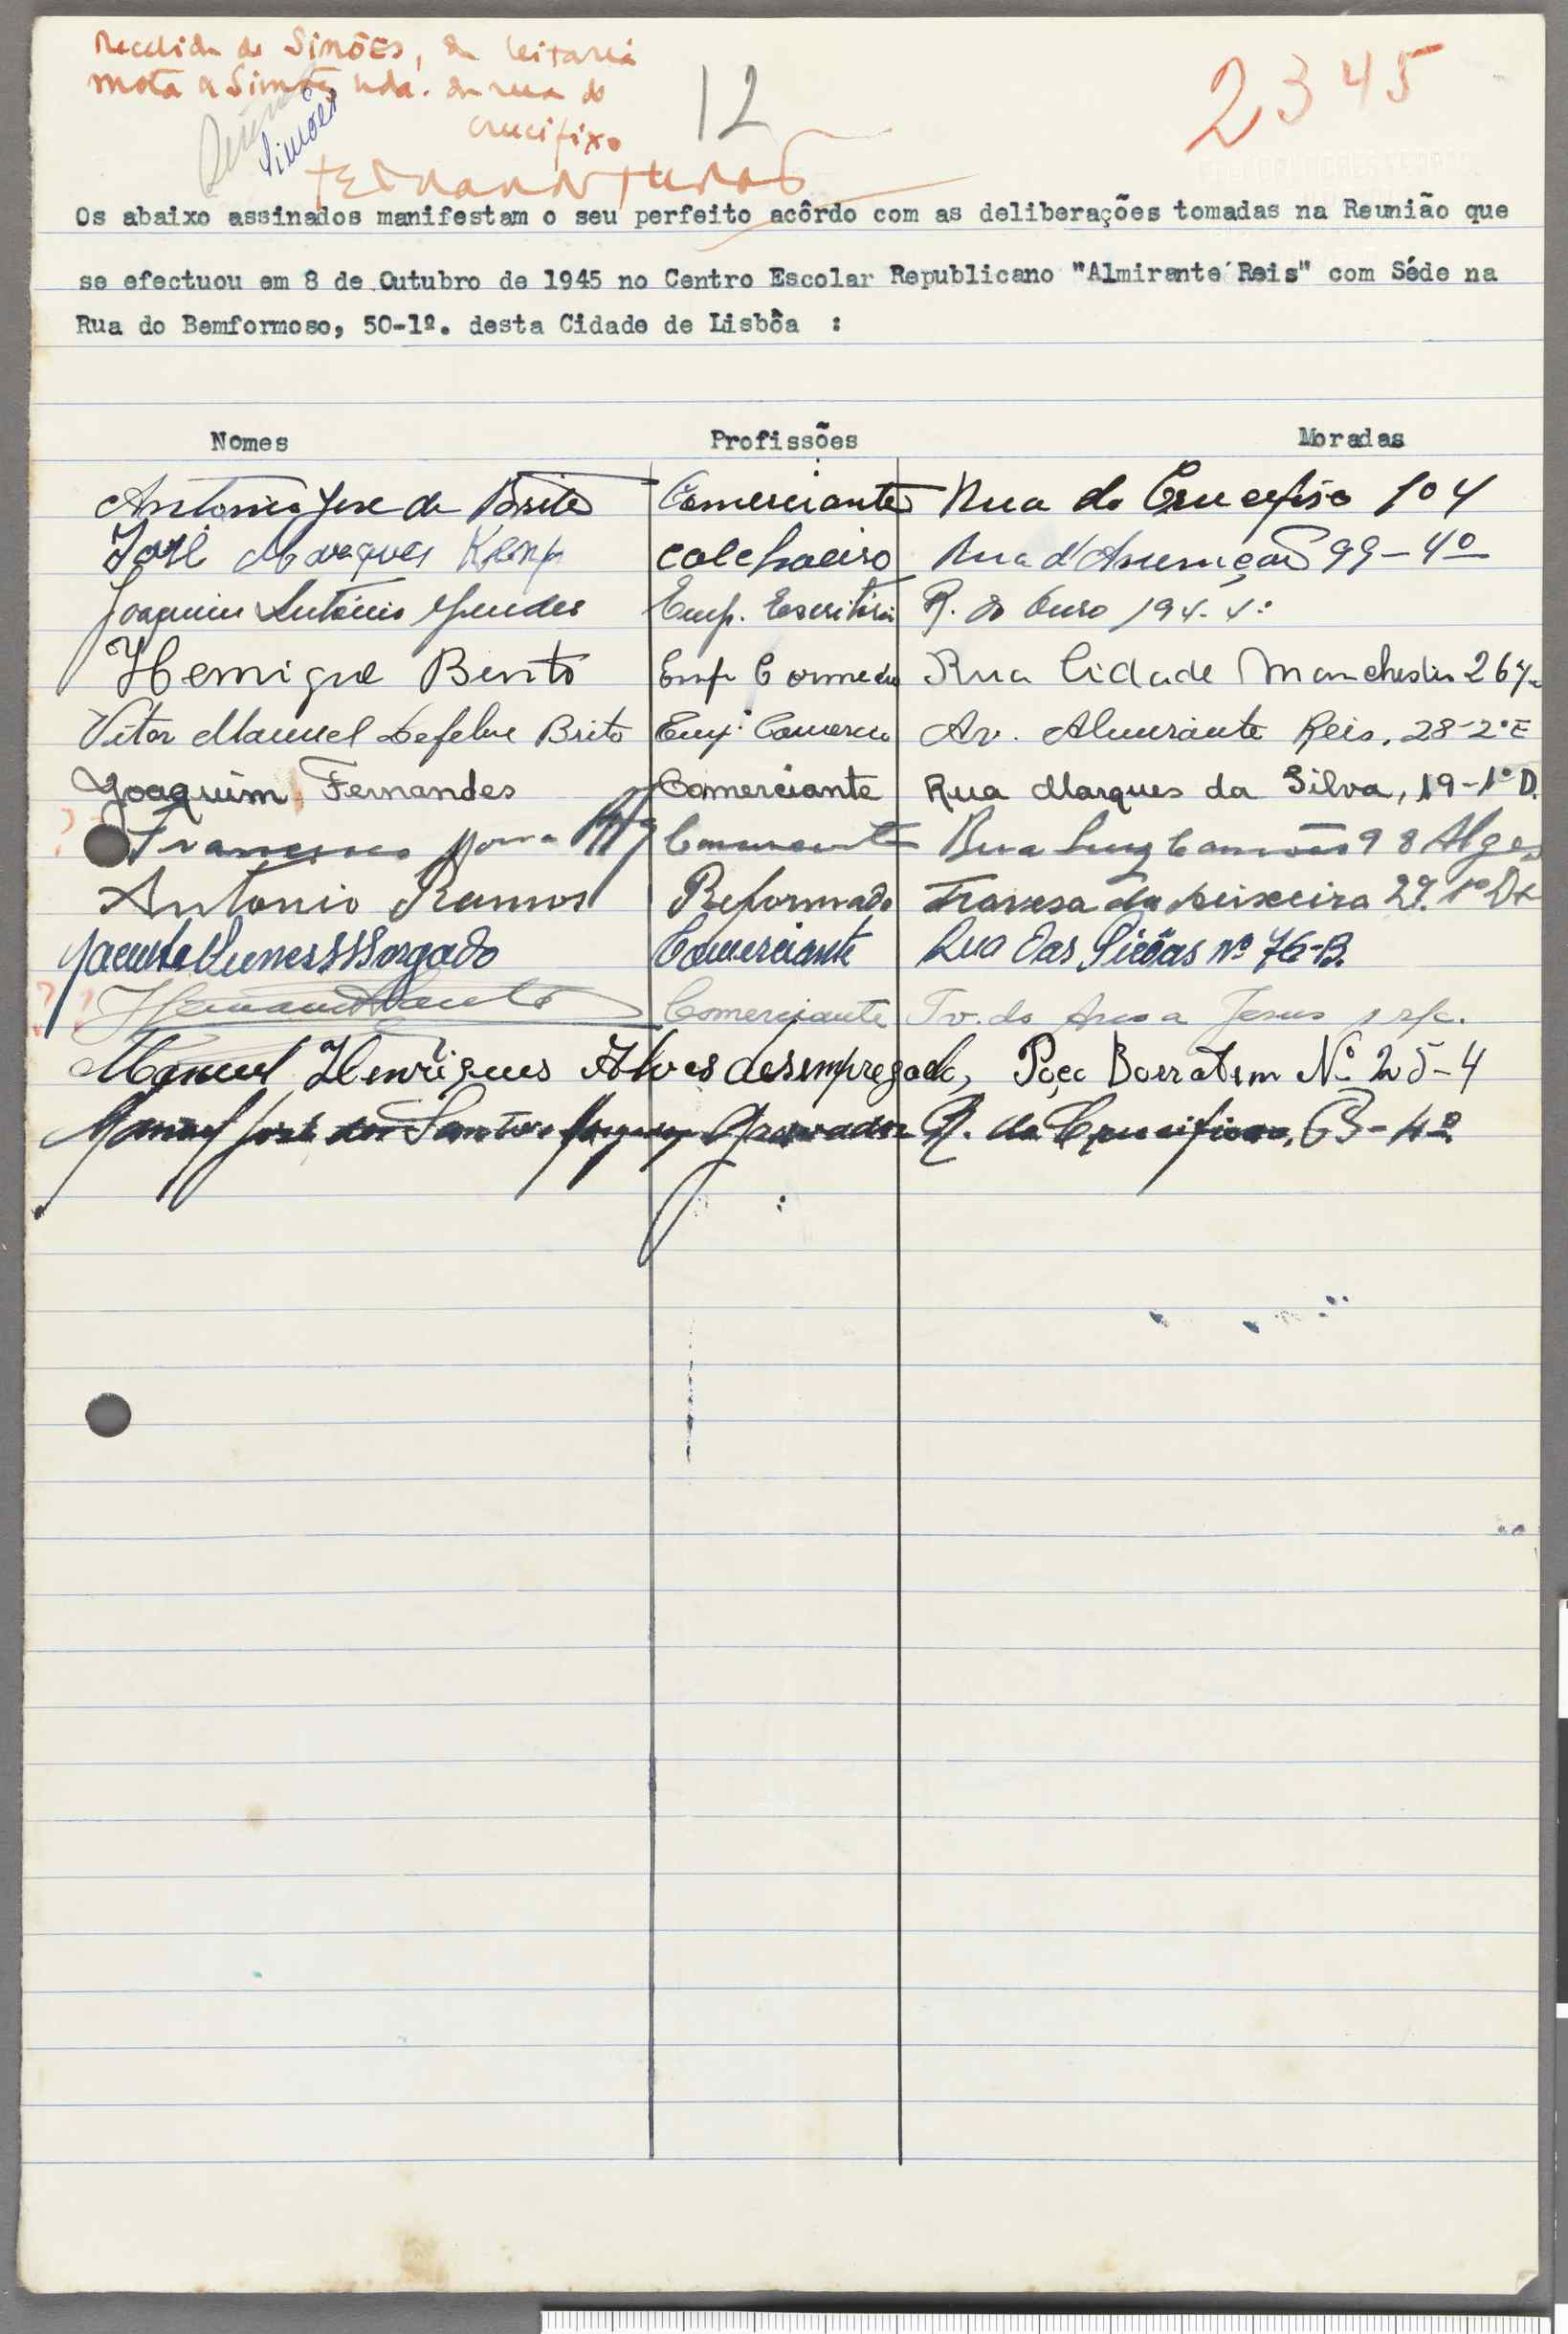 Recebida de Simões, da leitaria
Mota & Simões Lda. da rua do
Crucifixo
Simões
12
2345
Os abaixo assinados manifestam o seu perfeito acôrdo com as deliberações tomadas na Reunião que
se efectuou em 8 de Outubro de 1945 no Centro Escolar Republicano "Almirante Reis" com Séde na
Rua do Bemformoso, 50-1º. desta Cidade de Lisbôa :
Nomes Profissões Moradas
Antonio Jose de Brito Comerciante Rua do Crucefiso 104
José Marques colchoeiro Rua d'Assumção 99-4º
Joaquim António Mendes Emp. Escritório R. do Ouro 194-4º
Henrique Bento Emp Comercio Rua Cidade Manchester 26
Vitor Manuel Lefebre Brito Emp. Comercio Av. Almirante Reis, 28-2º E
Joaquim Fernandes Comerciante Rua Marques da Silva, 19-1º D.
? Francisco Comerciante Rua Luiz Camões 98 Alges
Antonio Ramos Reformado Travesa da 29. 1º Dt
Jacinto Nunes Morgado Comerciante Rua das Picôas nº 76-B.
? ? Comerciante Tv. do Arco a Jesus 1 r/c.
Manuel Henriques Alves desempregado, Poço Borratem Nº 25-4
Manuel José dos Santos Gravador R. do Crucifixo, 63-4º